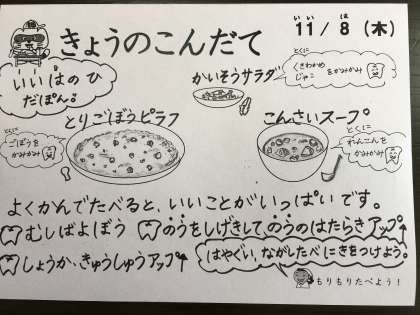 きょうのこんだて
いい は
11/8(木)
いいはのひ
だぽん。
かいそうサラダ
とくに
くきわかめ
じゃこ をかみかみ
とりごぼうピラフ
とくに
ごぼうを
かみかみ
こんさいスープ
とくに
れんこんを
かみかみ
よくかんでたべると、いいことがいっぱいです。
むしばよぼう のうをしげきしてのうのはたらきアップ↑
しょうか、きゅうしゅうアップ↑
はやぐい、ながしたべにきをつけよう。
もりもりたべよう!